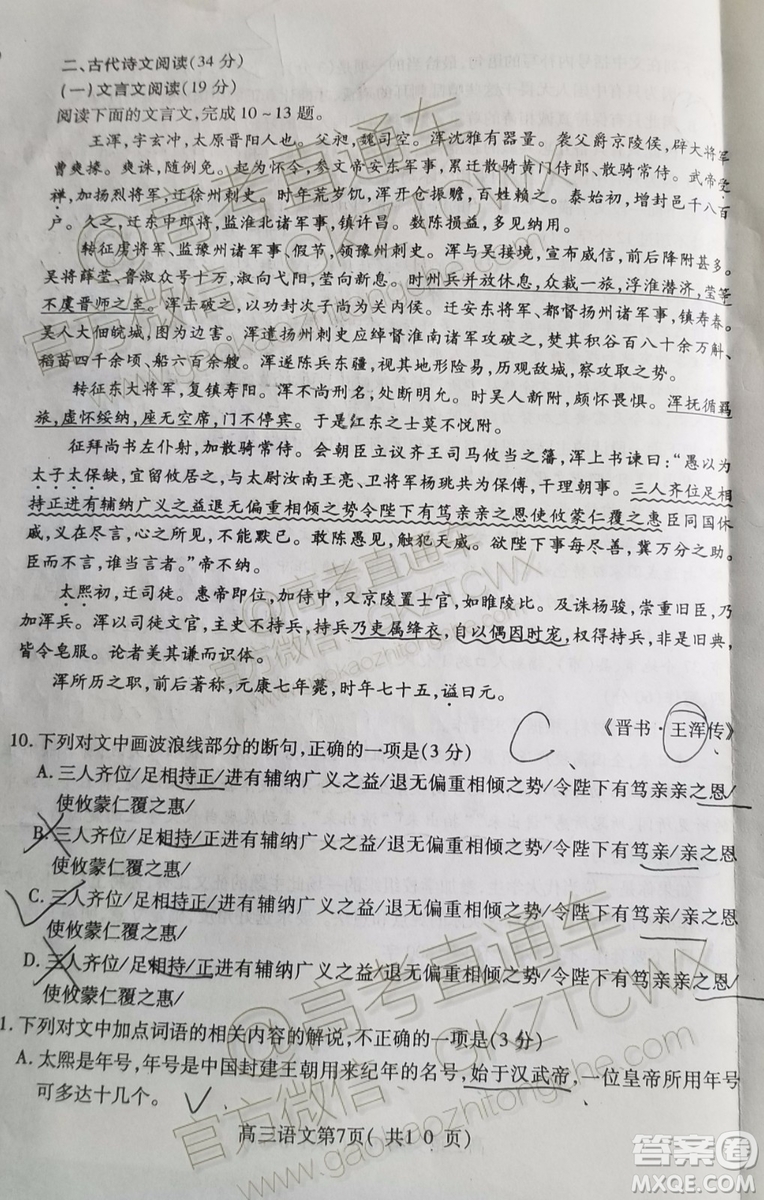 二、古代诗文阅读(34分)
(一)文言文阅读(19分)
阅读下面的文言文,完成10～13题。
王浑,字玄冲,太原晋阳人也。父昶,魏司空。浑沈雅有器量。袭父爵京陵侯,辟大将军
曹爽掾。爽诛,随例免。起为怀令,参文帝安东军事,累迁散骑黄门侍郎、散骑常侍。武帝受
禅,加扬烈将军,迁徐州刺史。时年荒岁饥,浑开仓振赡,百姓赖之。泰始初,增封邑千八百
户。久之,迁东中郎将,监淮北诸军事,镇许昌。数陈损益,多见纳用。
转征虏将军、监豫州诸军事、假节,领豫州刺史。浑与吴接境,宣布威信,前后降附甚多。
吴将薛莹、鲁淑众号十万,淑向弋阳,莹向新息。时州兵并放休息,众裁一旅,浮淮潜济,莹等
不虞晋师之至。浑击破之,以功封次子尚为关内侯。迁安东将军、都督扬州诸军事,镇寿春。
吴人大佃皖城,图为边害。浑遣扬州刺史应绰督淮南诸军攻破之,焚其积谷百八十余万斛、
稻苗四千余顷、船六百余艘。浑遂陈兵东疆,视其地形险易,历观敌城,察攻取之势。
转征东大将军,复镇寿阳。浑不尚刑名,处断明允。时吴人新附,颇怀畏惧。浑抚循羁
旅,虚怀绥纳,座无空席,门不停宾。于是红东之士莫不悦附。
征拜尚书左仆射,加散骑常侍。会朝臣立议齐王司马攸当之藩,浑上书谏曰:"愚以为
太子太保缺,宜留攸居之,与太尉汝南王亮、卫将军杨珧共为保傅,干理朝事。三人齐位足相
持正进有辅纳广义之益退无偏重相倾之势令陛下有笃亲亲之恩使攸蒙仁覆之惠臣同国休
戚,义在尽言,心之所见,不能默已。敢陈愚见,触犯天威。欲陛下事每尽善,冀万分之助。
臣而不言,谁当言者。"帝不纳。
太熙初,迁司徒。惠帝即位,加侍中,又京陵置士官,如睢陵比。及诛杨骏,崇重旧臣,乃
加浑兵。浑以司徒文官,主史不持兵,持兵乃吏属绛衣,自以偶因时宠,权得持兵,非是旧典,
皆令皂服。论者美其谦而识体。
浑所历之职,前后著称,元康七年薨,时年七十五,谥曰元。
《晋书·王浑传》
10. 下列对文中画波浪线部分的断句,正确的一项是(3分) C
A. 三人齐位/足相持正/进有辅纳广义之益/退无偏重相倾之势/令陛下有笃亲亲之恩/
使攸蒙仁覆之惠/
B. 三人齐位/足相持/正进有辅纳广义之益/退无偏重相倾之势/令陛下有笃亲/亲之恩
使攸蒙仁覆之惠/
C. 三人齐位/足相持正/进有辅纳广义之益/退无偏重相倾之势/令陛下有笃亲/亲之恩
使攸蒙仁覆之惠/
D. 三人齐位/足相持/正进有辅纳广义之益/退无偏重相倾之势/令陛下有笃亲亲之恩/
使攸蒙仁覆之惠/
1. 下列对文中加点词语的相关内容的解说,不正确的一项是(3分)
A. 太熙是年号,年号是中国封建王朝用来纪年的名号,始于汉武帝,一位皇帝所用年号
可多达十几个。
高三语文第7页( 共10 页)
@高考直通车
官方微信:GKZTCWX
www.gaokaozhitongche.com
@高考直通车
官方微信:GKZTCWX
www.gaokaozhitongche.com
@高考直通车
官方微信:GKZTCWX
www.gaokaozhitongche.com
答案圈
MXQE.COM